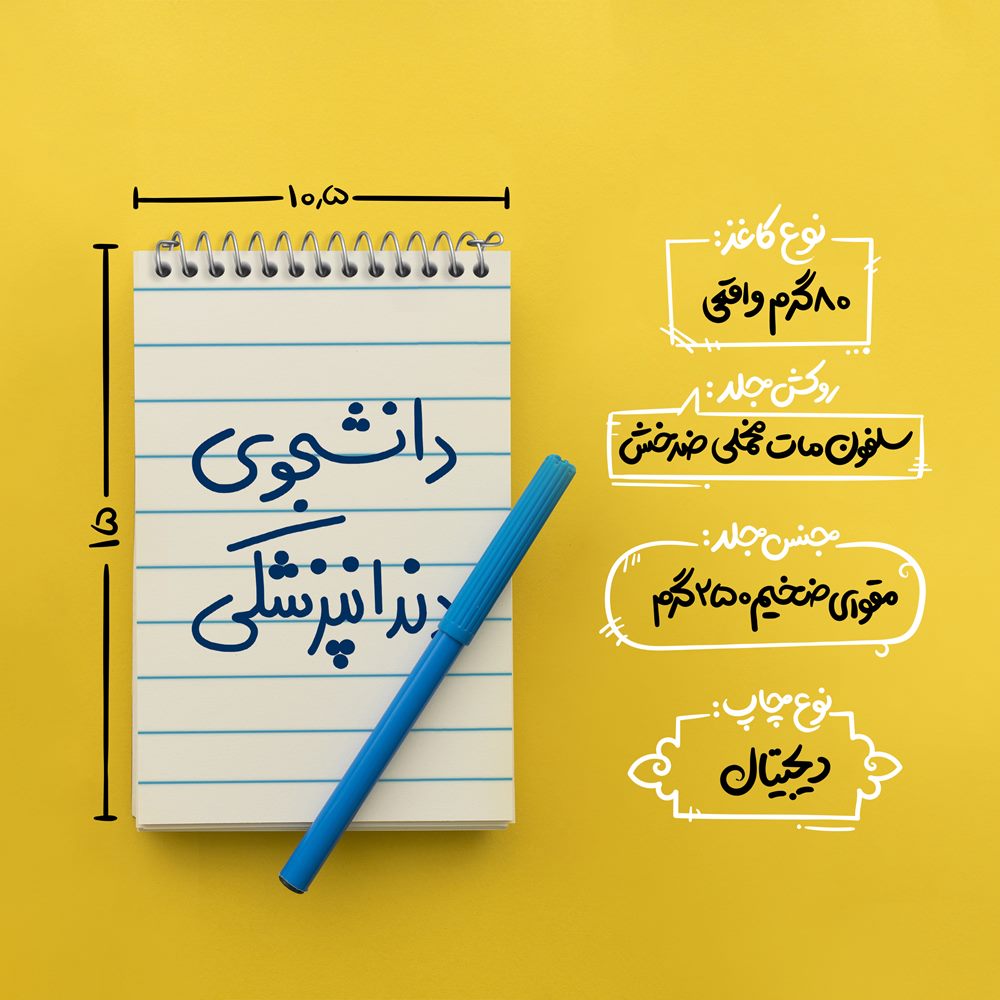 ۱۰٫۵
۱۵
دانشجوی
دندانپزشکی
نوع کاغذ:
۸۰گرم واقعی
روکش جلد:
سلفون مات مخملی ضدخش
جنس جلد:
مقوای ضخیم ۲۵۰گرم
نوع چاپ:
دیجیتال